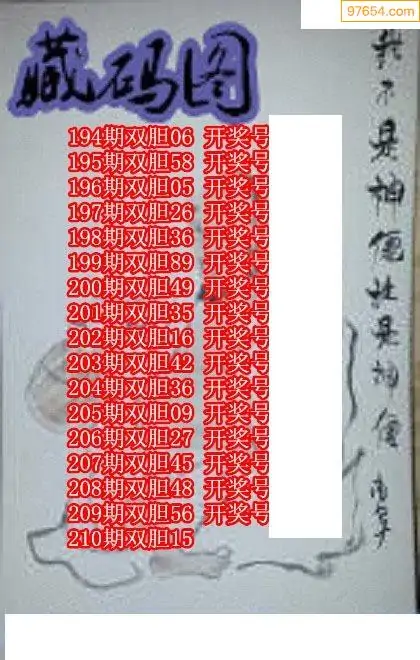 97654.com
藏码图
194期双胆06 开奖号
195期双胆58 开奖号
196期双胆05 开奖号
197期双胆26 开奖号
198期双胆36 开奖号
199期双胆89 开奖号
200期双胆49 开奖号
201期双胆35 开奖号
202期双胆16 开奖号
203期双胆42 开奖号
204期双胆36 开奖号
205期双胆09 开奖号
206期双胆27 开奖号
207期双胆45 开奖号
208期双胆48 开奖号
209期双胆56 开奖号
210期双胆15
我不是神仙胜是神仙